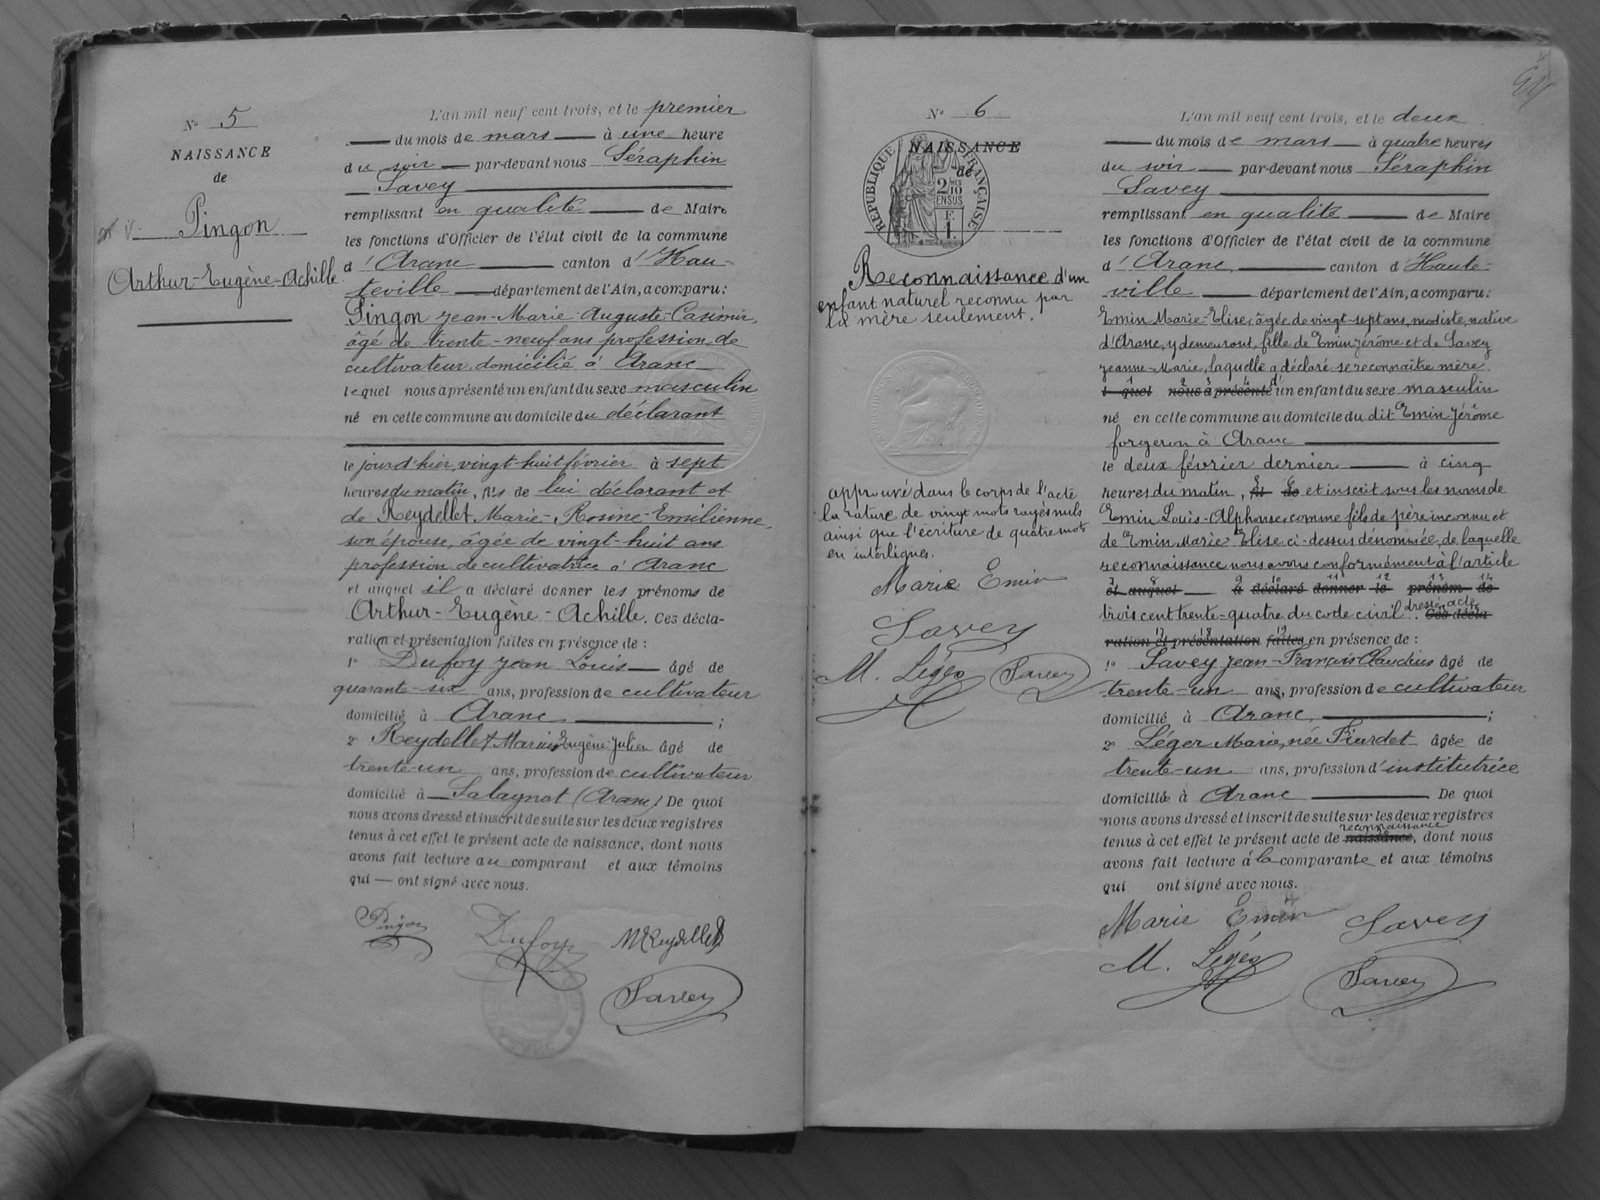 N° 5
NAISSANCE
de
Pingon
Arthur-Eugène-Achille
L'an mil neuf cent trois, et le premier
du mois de mars à une heure
du soir par-devant nous Séraphin
Savey
remplissant en qualité de Maire
les fonctions d'Officier de l'état civil de la commune
d'Aranc canton d'Hau-
teville département de l'Ain, a comparu:
Pingon Jean-Marie-Auguste-Casimir,
âgé de trente-neuf ans profession de
cultivateur domicilié à Aranc
lequel nous a présenté un enfant du sexe masculin
né en cette commune au domicile du déclarant
le jour d'hier, vingt-huit février à sept
heures du matin, fils de lui déclarant et
de Reydellet Marie-Rosine-Emilienne,
son épouse, âgée de vingt-huit ans
profession de cultivatrice à Aranc
et auquel il a déclaré donner les prénoms de
Arthur-Eugène-Achille. Ces décla-
ration et présentation faites en présence de :
1° Dufoy Jean Louis âgé de
quarante-six ans, profession de cultivateur
domicilié à Aranc ;
2° Reydellet Marius Eugène Julien âgé de
trente-un ans, profession de cultivateur
domicilié à Salagnat (Aranc) De quoi
nous avons dressé et inscrit de suite sur les deux registres
tenus à cet effet le présent acte de naissance, dont nous
avons fait lecture au comparant et aux témoins
qui — ont signé avec nous.
Pingon Dufoy MReydellet
Savey
N° 6
NAISSANCE
de
RÉPUBLIQUE FRANÇAISE
2/10
EN SUS
1 F.
Reconnaissance d'un
enfant naturel reconnu par
la mère seulement.
approuvé dans le corps de l'acte
la rature de vingt mots rayés nuls
ainsi que l'écriture de quatre mots
en interlignes.
Marie Emin
Savey
M. Léger Savey
L'an mil neuf cent trois, et le deux
du mois de mars à quatre heures
du soir par-devant nous Séraphin
Savey
remplissant en qualité de Maire
les fonctions d'Officier de l'état civil de la commune
d'Aranc canton d'Haute-
ville département de l'Ain, a comparu:
Emin Marie-Elise, âgée de vingt-sept ans, modiste, native
d'Aranc, y demeurant, fille de Emin Jérôme et de Savey
Jeanne-Marie, laquelle a déclaré se reconnaître mère
l quel nous a présenté d'un enfant du sexe masculin
né en cette commune au domicile du dit Emin Jérôme
forgeron à Aranc
le deux février dernier à cinq
heures du matin, fil de et inscrit sous les noms de
Emin Louis-Alphonse, comme fils de père inconnu et
de Emin Marie Elise ci-dessus dénommée, de laquelle
reconnaissance nous avons conformément à l'article
et auquel a déclaré donner le prénom de
trois cent trente-quatre du code civil dressé acte Ces décla
ration et présentation faites en présence de :
1° Savey Jean-François Claudius âgé de
trente-un ans, profession de cultivateur
domicilié à Aranc, ;
2° Léger Marie, née Piardet âgée de
trente-un ans, profession d'institutrice
domiciliée à Aranc De quoi
nous avons dressé et inscrit de suite sur les deux registres
tenus à cet effet le présent acte de naissance reconnaissance, dont nous
avons fait lecture à la comparante et aux témoins
qui ont signé avec nous.
Marie Emin Savey
M. Léger Savey